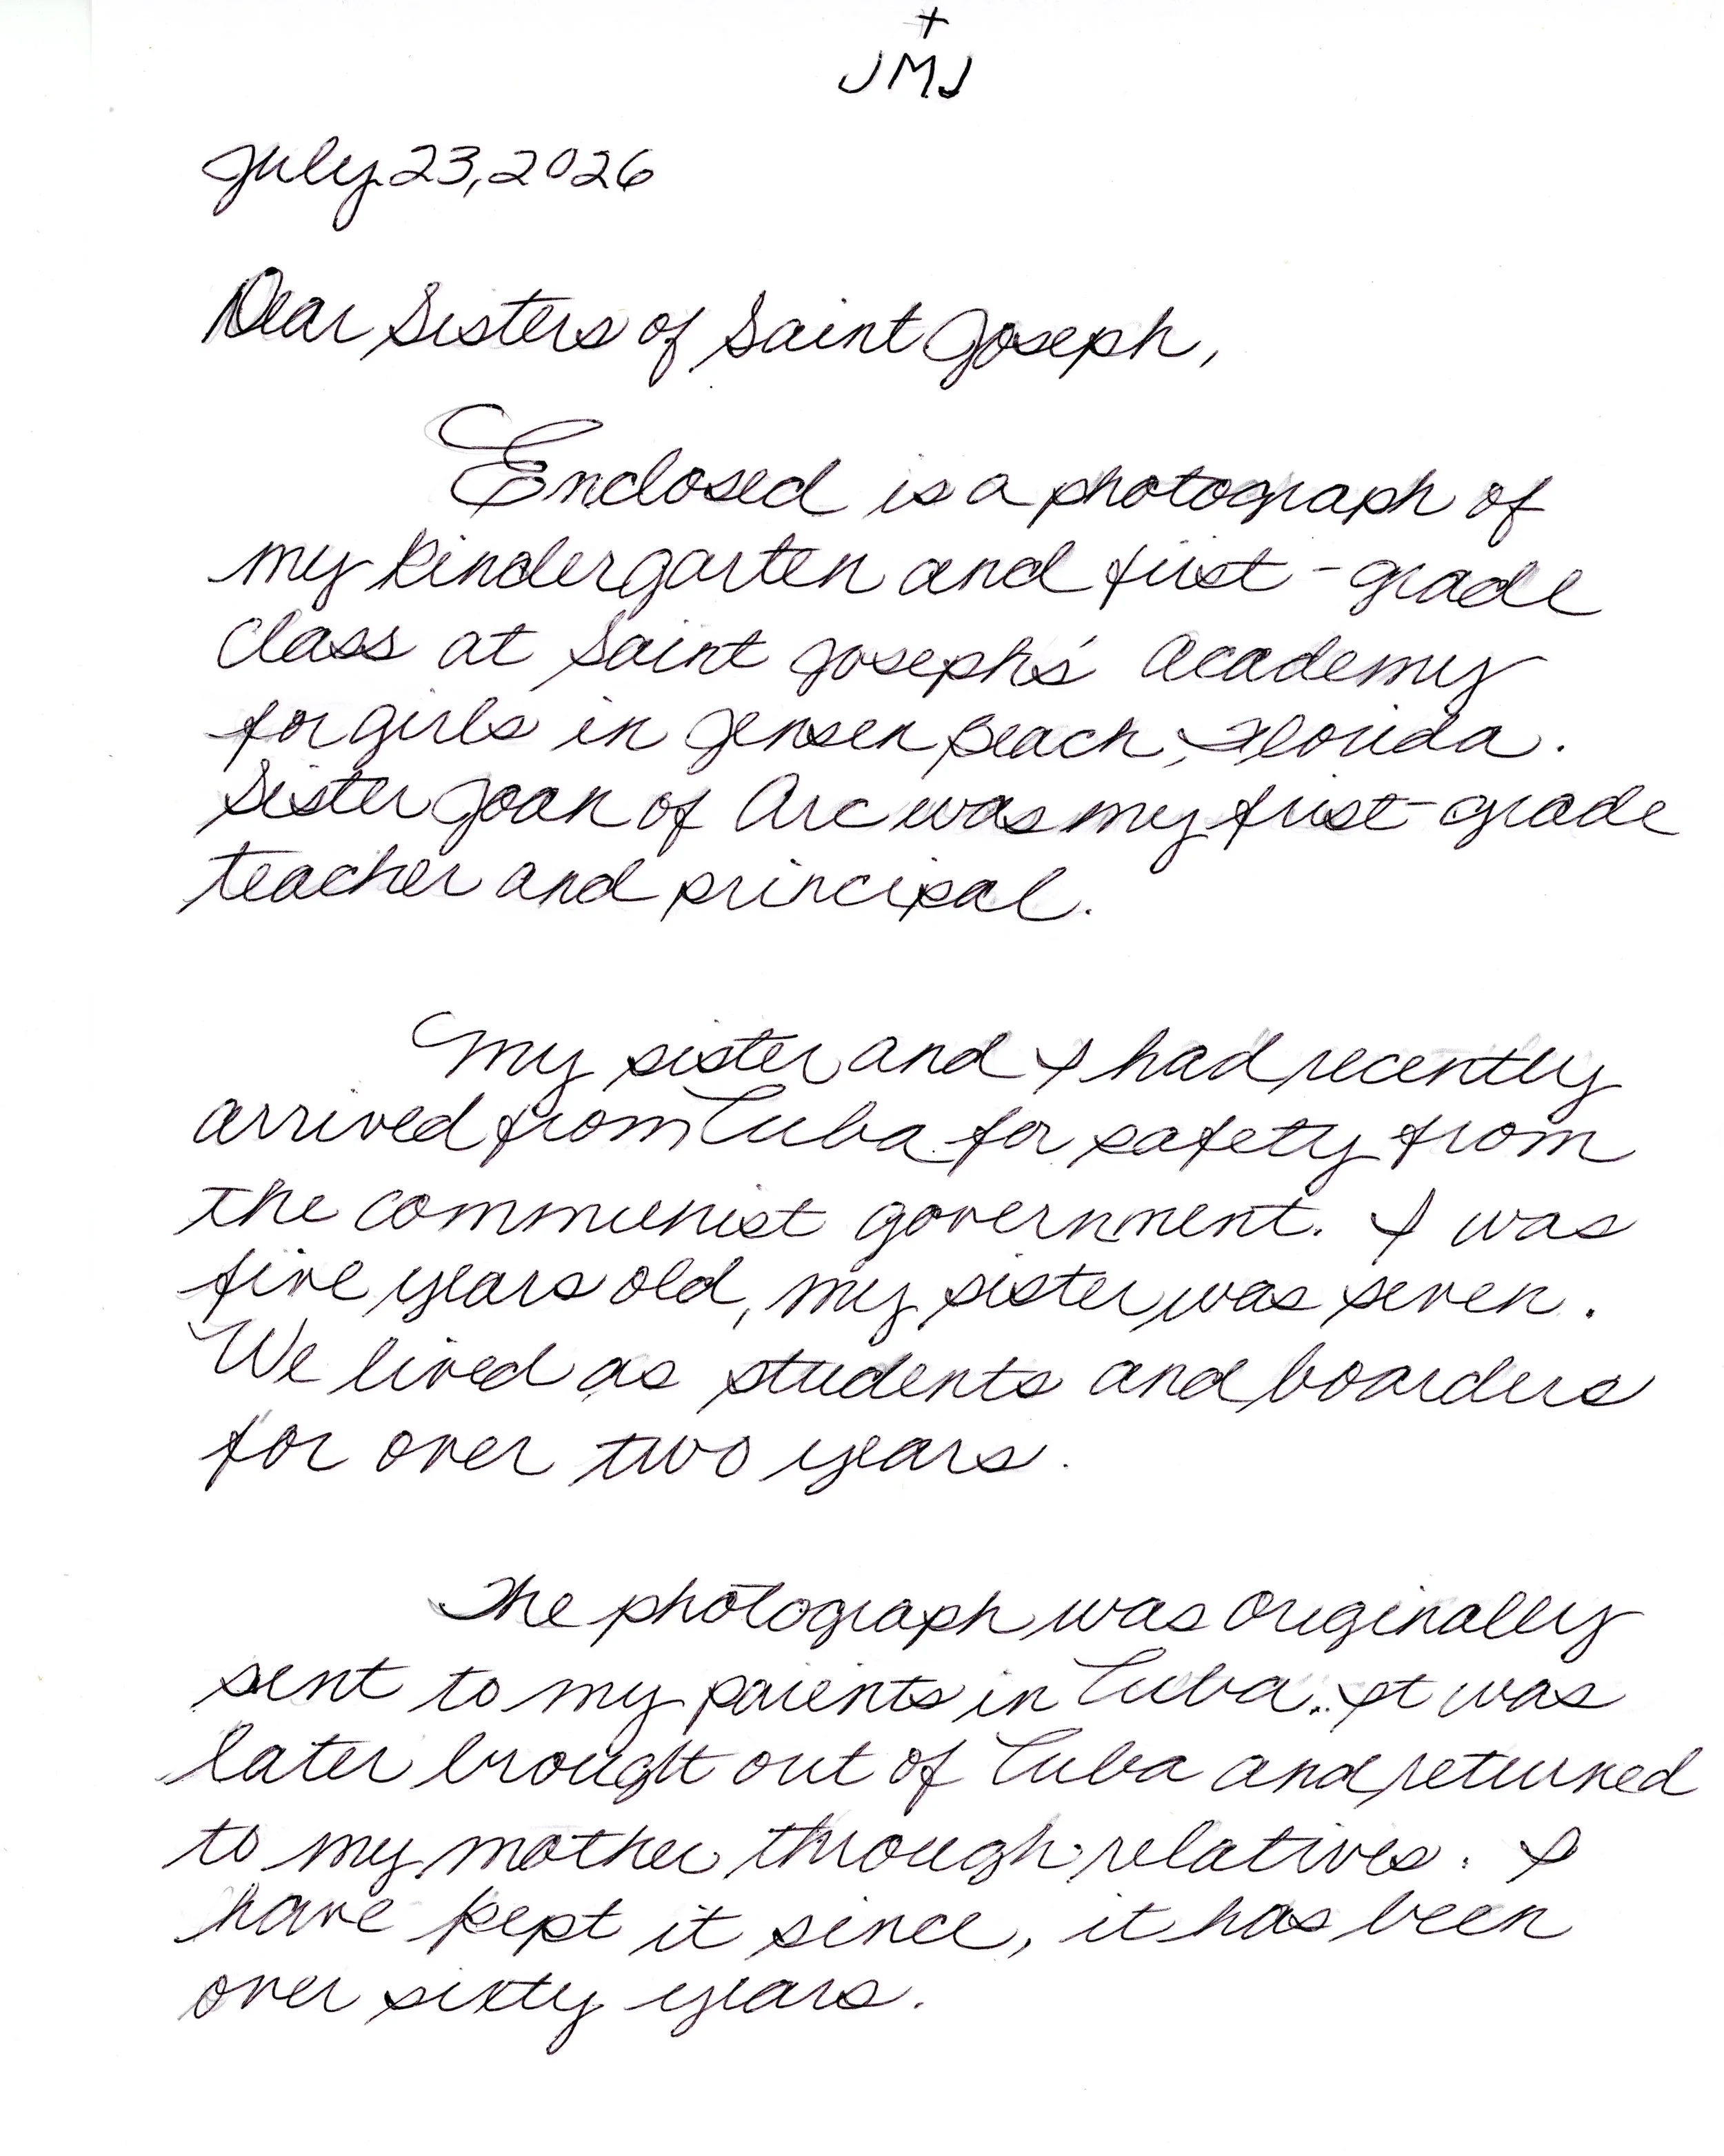 +
JMJ
July 23, 2026
Dear Sisters of Saint Joseph,
Enclosed is a photograph of
my kindergarten and first-grade
class at Saint Joseph's Academy
for girls in Jensen Beach, Florida.
Sister Joan of Arc was my first-grade
teacher and principal.
My sister and I had recently
arrived from Cuba for safety from
the communist government. I was
five years old, my sister was seven.
We lived as students and boarders
for over two years.
The photograph was originally
sent to my parents in Cuba. It was
later brought out of Cuba and returned
to my mother through relatives. I
have kept it since, it has been
over sixty years.